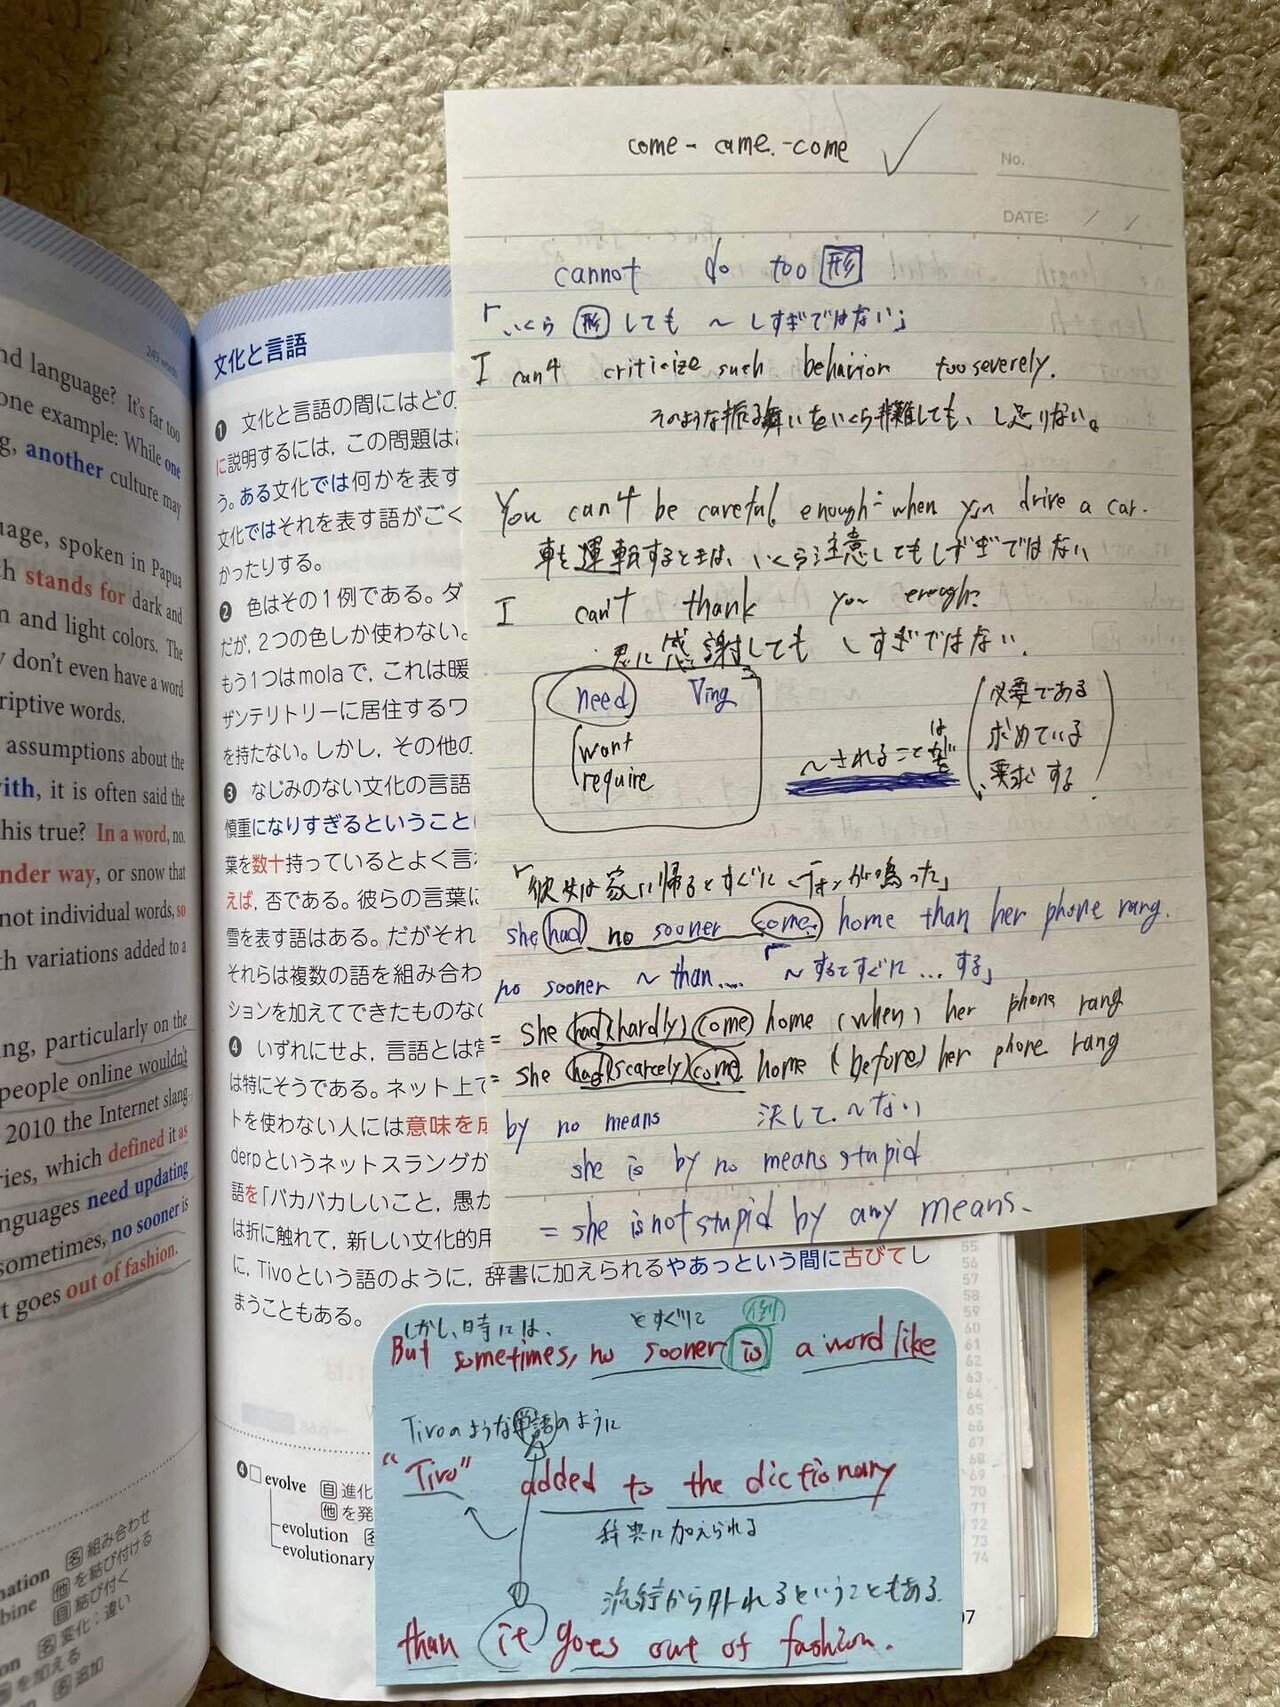 249 words
nd language? It's far too
one example: While one
g, another culture may
uage, spoken in Papua
ch stands for dark and
n and light colors. The
y don't even have a word
riptive words.
assumptions about the
with, it is often said the
his true? In a word, no.
nder way, or snow that
not individual words, so
th variations added to a
ng, particularly on the
people online wouldn't
2010 the Internet slang
ries, which defined it as
nguages need updating
sometimes, no sooner is
t goes out of fashion.
nation 名 組み合わせ
bine 他 を結び付ける
自 結び付く
名 変化;違い
を加える
名 追加
文化と言語
❶ 文化と言語の間にはどの
に説明するには,この問題は
う。ある文化では何かを表す
文化ではそれを表す語がごく
かったりする。
❷ 色はその1例である。ダ
だが,2つの色しか使わない。
もう1つはmolaで,これは暖
ザンテリトリーに居住するワ
を持たない。しかし,その他の
❸ なじみのない文化の言語
慎重になりすぎるということ
葉を数十持っているとよく言
えば,否である。彼らの言葉に
雪を表す語はある。だがそれ
それらは複数の語を組み合わ
ションを加えてできたものなの
❹ いずれにせよ,言語とは常
は特にそうである。ネット上で
トを使わない人には意味を成
derpというネットスラングが
語を「バカバカしいこと,愚か
は折に触れて,新しい文化的用
に,Tivoという語のように,辞書に加えられるやあっという間に古びてし
まうこともある。
❹ evolve 自 進化
他 を発
evolution 名
evolutionary
come - came. - come
No.
DATE: / /
cannot do too 形
「いくら 形 しても ~ しすぎではない」
I can't criticize such behavior too severely.
そのような振る舞いをいくら非難しても、し足りない。
You can't be careful enough when you drive a car.
車を運転するときは、いくら注意してもしすぎではない
I can't thank you enough.
君に感謝してもしすぎではない.
need Ving
want
require
~されることを
必要である
求めている
要求する
「彼女は家に帰るとすぐに、フォンが鳴った」
she had no sooner come home than her phone rang.
no sooner ~ than..... 「~するとすぐに...する」
= she had (hardly) come home (when) her phone rang
= she had (scarcely) come home (before) her phone rang
by no means 決して~ない
she is by no means stupid
= she is not stupid by any means.
しかし、時には、 とすぐに 倒
But sometimes, no sooner is a word like
Tivoのような単語のように
"Tivo" added to the dictionary
辞典に加えられる
流行から外れるということもある.
than it goes out of fashion.
55
56
57
58
59
60
61
62
63
64
65
66
67
68
69
70
71
72
73
74
97